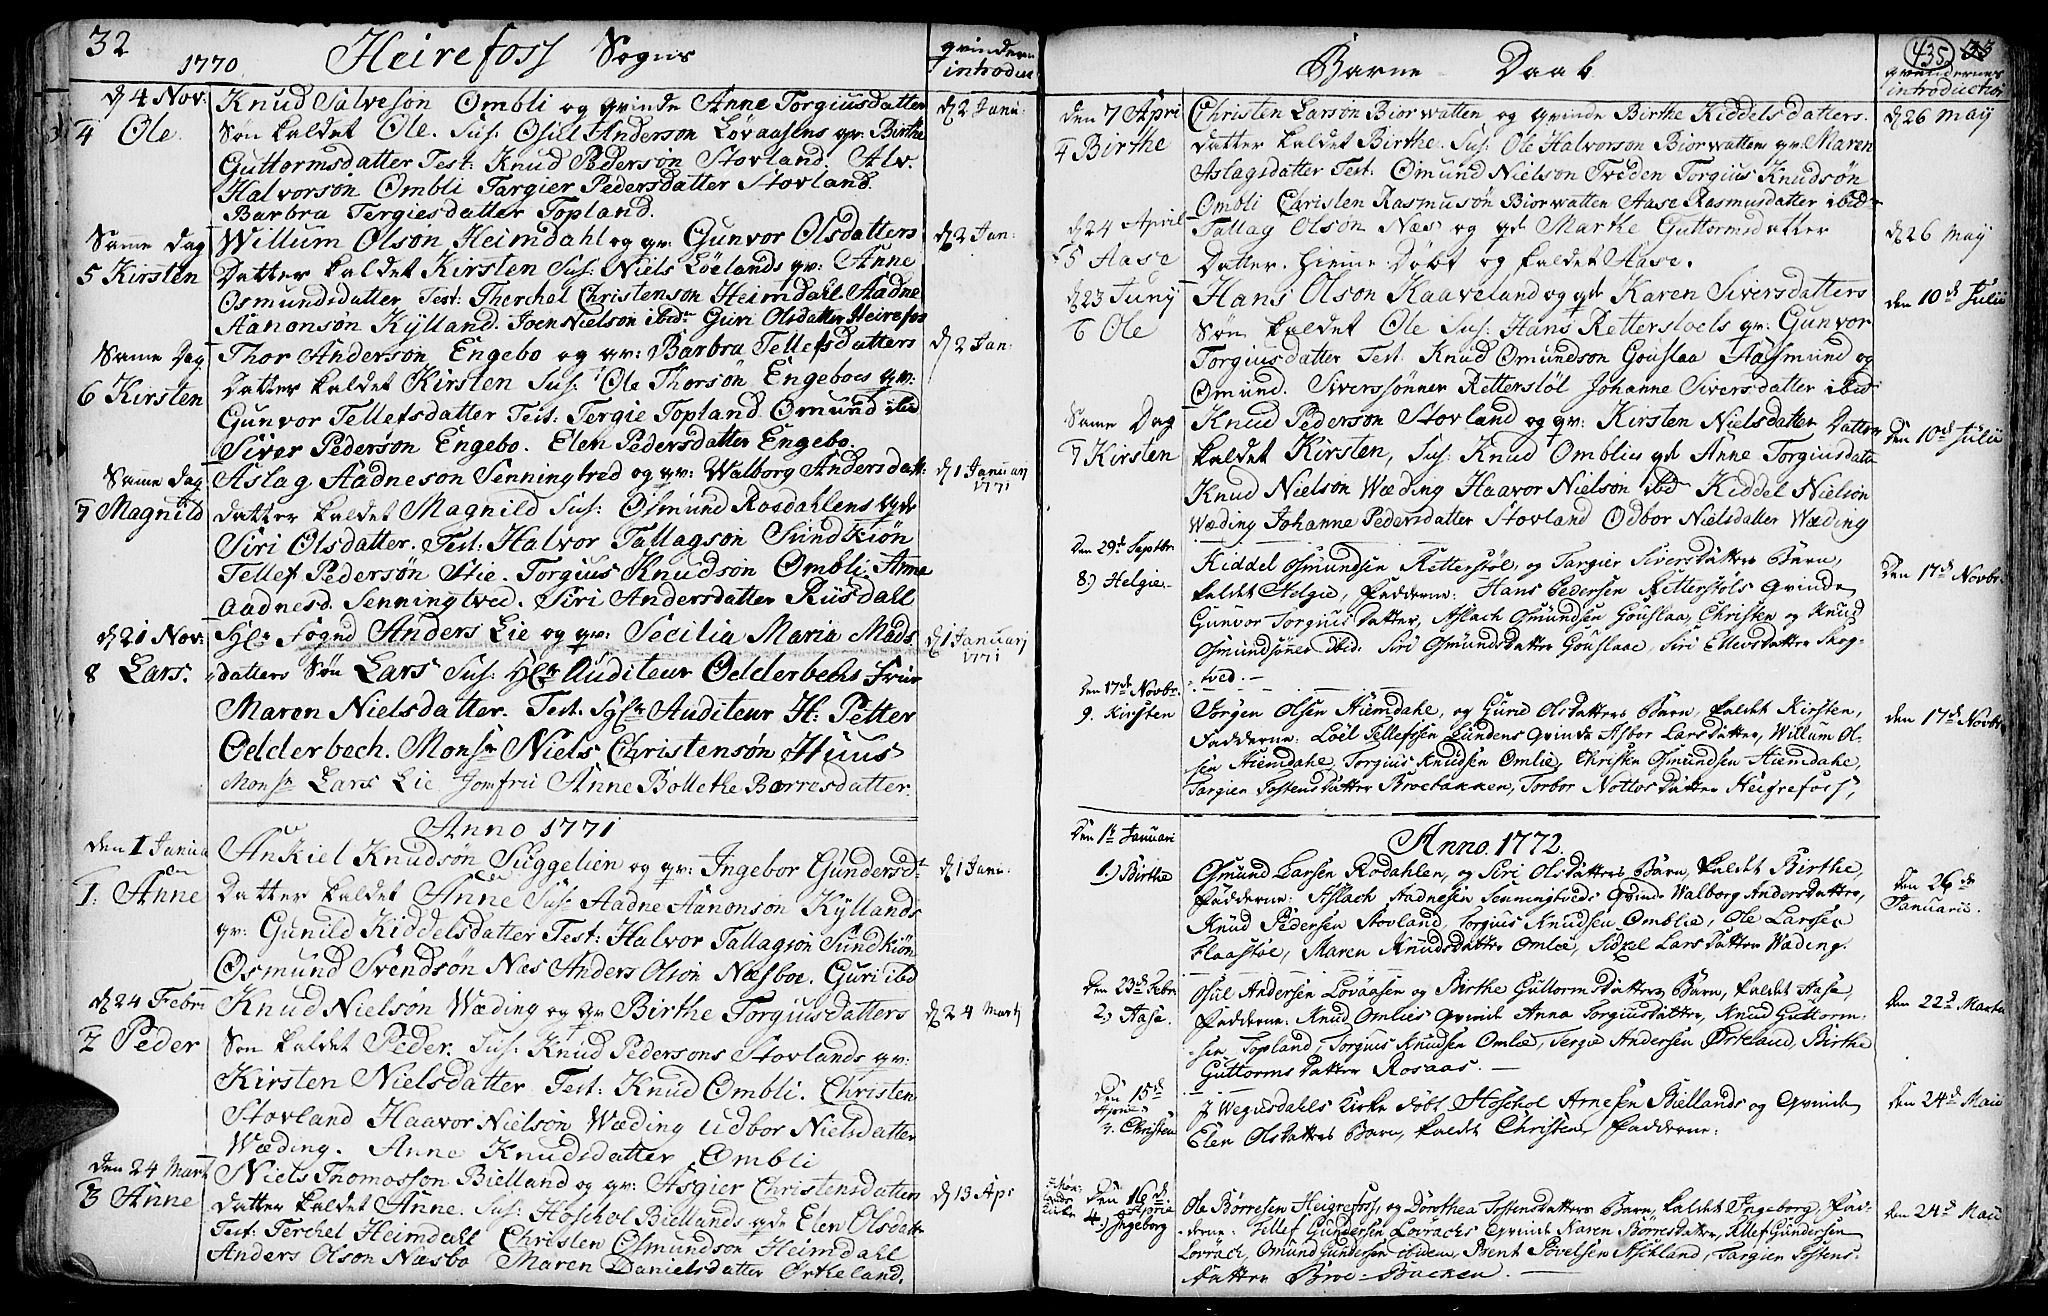 32
1770. Heirefoss Sogns
qvindern
introduc
d 4 Nov: Knud Salveson Ombli og qvinde Anne Torgiusdatter d 2 Janu:
4 Ole. Søn kaldet Ole. Sus: Osill Anderson Løvaasens qv: Birthe
Guttormsdatter Test: Knud Pederson Stovland. Alv.
Halvorson Ombli Targier Pedersdatter Stovland.
Barbra Tergiesdatter Topland.
Same dag Willum Olson Heimdahl og qv: Gunvor Olsdatters d 2 Jan:
5 Kirsten Datter kaldet Kirsten Sus: Niels Løelands qv: Anne
Osmundsdatter, Test: Therchel Christenson Heimdahl Aadne
Aanonsøn Kylland. Joen Nielson ibid: Guri Olsdatter Heirefos
Same Dag Thor Anderson Engebo og qv: Barbra Tellefsdatters d 2 Jan:
6 Kirsten Datter kaldet Kirsten Sus: Ole Thorsøn Engeboes qv:
Gunvor Tellefsdatter Test: Tergie Topland Omund ibid
Siver Pederson Engebo. Elen Pedersdatter Engebo.
Same dag Aslag Aadneson Senningtved og qv: Walborg Andersdatt: d 1 Januari 1771
7 Magnild datter kaldet Magnild Sus: Osmund Rosdahlens qde
Siri Olsdatter. Test: Halvor Tallagson Sundkiøn
Tellef Pedersøn Stie. Torgius Knudson Ombli. Anne
Aadnesd. Senningtved. Siri Andersdatter Riisdall
d 21 Nov: Hr Fogud Anders Lie og qv: Secilia Maria Mads d 1 Januarj 1771
8 Lars. datters Søn Lars Sus: Hr Auditeur Oedderbechs Frue
Maren Nielsdatter. Test. Hr Auditeur H: Petter
Oedderbech. Monsr Niels Christensøn Huus
Monsr Lars Lie Jomfru Anne Bolleke Borresdatter.
Anno 1771
den 1 Janua Ankiel Knudsøn Suggelien og qv: Ingebor Gundersdt d 1 Janu:
1. Anne Datter kaldet Anne Sus: Aadne Aanonson Kyllands
qv: Gunild Kiddelsdatter Test: Halvor Tallagson Sundkiøn
Osmund Svendsøn Næs Anders Olson Næsboe. Guri ibid
d 24 Febru Knud Nielsøn Wæding og qv Birthe Torgiusdatters d 24 Marty
2 Peder Søn kaldet Peder. Sus: Knud Pedersons Stovlands qv:
Kirsten Nielsdatter. Test: Knud Ombli. Christen
Stovland Haavor Nielson Wæding Udbor Nielsdatter
Wæding. Anne Knudsdatter Ombli
den 24 Mart Niels Thomosson Bielland og qv: Asgier Christensdatter d 13 Apr
3 Anne datter kaldet Anne. Sus: Hoschol Biellands qde Elen Olsdatt
Test: Terchel Heimdahl Christen Osmundson Heimdahl
Anders Olson Næsbo Maren Danielsdatter Ørkeland.
435 33
Barne Daab
qvindernes
introduction
den 7 Apri Christen Larsøn Biorwatten og qvinde Birthe Kiddels datters d 26 May
4 Birthe datter kaldet Birthe. Sus: Ole Halvorson Biorwatten qv: Maren
Aslagsdatter Test: Omund Nielson Treden Torgius Knudsøn
Ombli Christen Rasmusøn Biorwatten Aase Rasmusdatter ibid
d 24 April Tallag Olson Næs og qde Marthe Guttormsdatter d 26 May
5 Aase Datter. hieme døbt og kaldet Aase.
d 23 Juny Hans Olson Kaaveland og qde Karen Siversdatters den 10d Julii
6 Ole Søn kaldet Ole Sus: Hans Retterstoels qv: Gunvor
Torgiusdatter Test: Knud Omundson Gouslaa Aasmund og
Omund. Siverssønner Retterstøl Johanne Siversdatter ibid
Same Dag Knud Pederson Stovland og qv: Kirsten Nielsdatter Datter den 10d Julii
7 Kirsten kaldet Kirsten, Sus: Knud Omblies qde Anne Torgiusdatt
Knud Nielson Wæding Haavor Nielson ibid Kiddel Nielson
Wæding Johanne Pedersdatter Stovland Odbor Nielsdatter Wæding
Den 29d Septbr Kiddel Osmundsen Retterstøl, og Targier Siversdatters Barn, Den 17d Novbr.
8.) Helgie. kaldet Helgie, Fadderne: Hans Pedersen Rettersthols Qvinde
Gunvor Torgiusdatter, Aslach Osmundsen Gouslaa, Christen og Knud
Osmundsøner ibid: Siri Osmundsdatter Gouslaae, Siri Ellevsdatter Skog-
tved.
Den 17d Novbr. Jørgen Olsen Hiemdahl, og Gurie Olsdatters Barn, kaldet Kirsten, den 17d Novbr
9. Kirsten Fadderne: Loel Tellefsen Lundens Qvinde Asbor Larsdatter, Willum Ol-
sen Hiemdahl, Torgius Knudsen Omlie, Christen Osmundsen Hiemdahle,
Targier Tostensdatter Broebakken, Torbor Nottosdatter Heigrefoss,
Anno. 1772.
Den 1t Januari Osmund Larsen Rosdahlen, og Siri Olsdatters Barn, kaldet Birthe, Den 26d Januarii.
1.) Birthe Fadderne: Aslach Aadnesen Senningtveds Qvinde Walborg Andersdatter,
Knud Pedersen Stovland, Torgius Knudsen Omblie, Ole Larssen
Flaastøe, Maren Knudsdatter Omlie, Sidsel Larsdatter Wæding.
Den 23d Febr. Osul Andersen Lovaasen og Birthe Guttormsdatters Barn, kaldet Aase, den 22d Martii
2.) Aase. Fadderne: Knud Omlies Qvinde Anna Torgiusdatter, Knud Guttorm-
sen Topland, Torgius Knudsen Omlie, Tergie Andersen Ørkeland, Birthe
Guttormsdatter Rosaas.
Den 15d April J Wegusdahls Kirke døbt Hoschol Arnesen Biellands og Qvinde den 24d Maii
3. Christen Elen Olsdatters Barn, kaldet Christen, Fadderne:
Den 16d Aprie Ole Børresen Heigrefoss, og Dorothea Tostensdatters Barn, kaldet Ingeborg, Fad- den 24d Maii
4. Ingeborg derne: Tellef Gundersen Lovrachs Qvinde Karen Børresdatter, Tellef Gundersen
Lovrach, Omund Gundersen ibidem, Bent Povelsen Askland, Targier Tostens-
datter Broe-Backen.